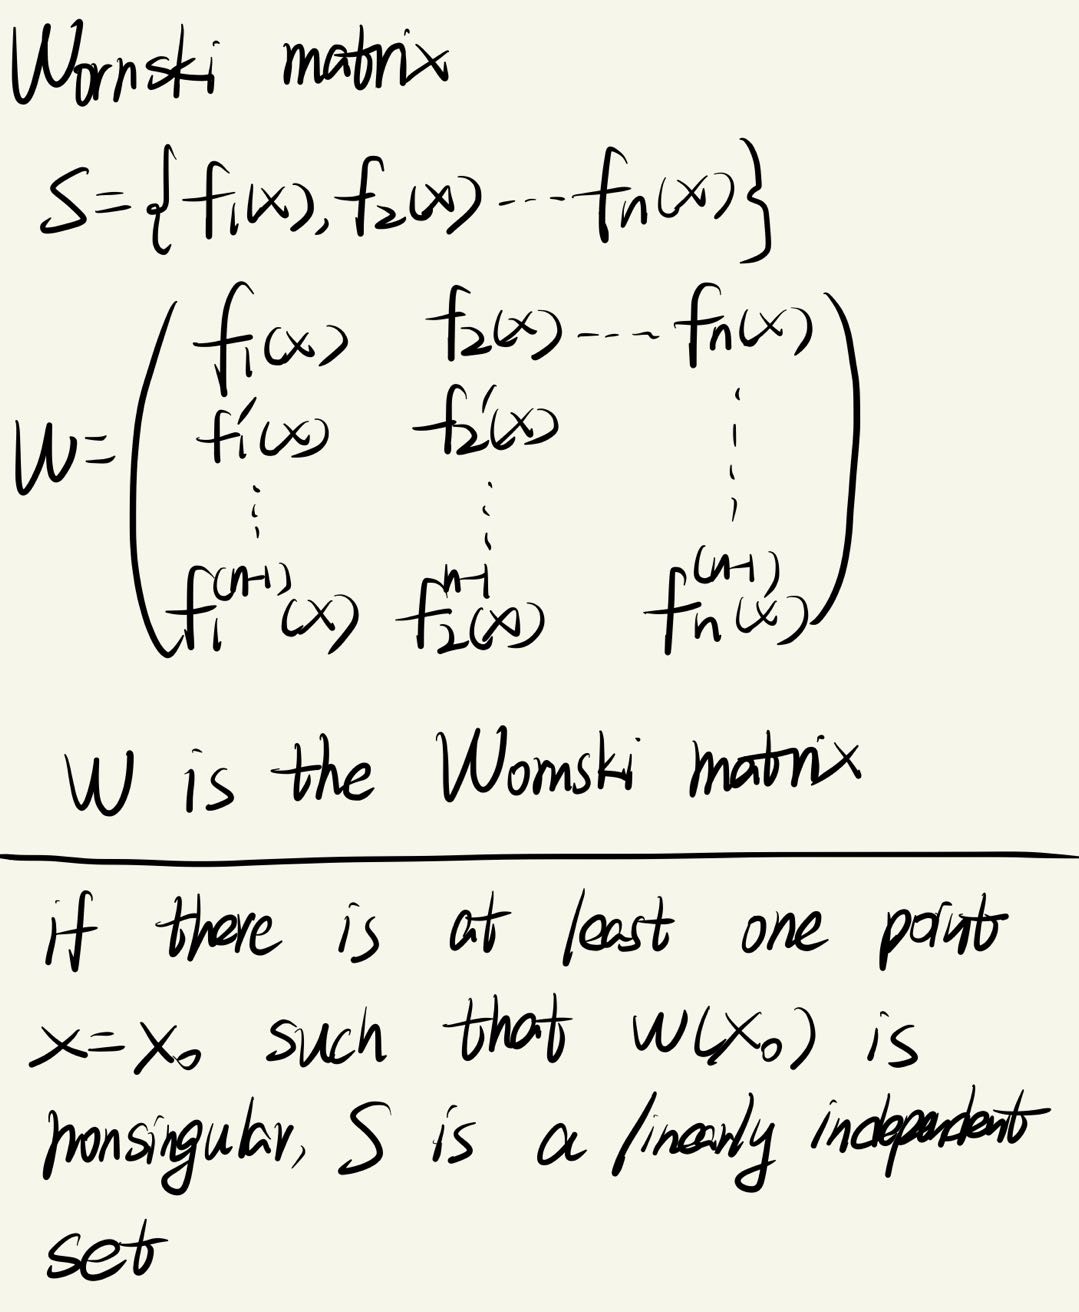 Wornski matrix
S={f₁(x), f₂(x) ---- fₙ(x)}
f₁(x) f₂(x) ---- fₙ(x)
W= f₁'(x) f₂'(x) ⋮
⋮ ⋮
f₁⁽ⁿ⁻¹⁾(x) f₂ⁿ⁻¹(x) fₙ⁽ⁿ⁻¹⁾(x)
W is the Wornski matrix
if there is at least one point
x=x₀ such that W(x₀) is
nonsingular, S is a linearly independent
set